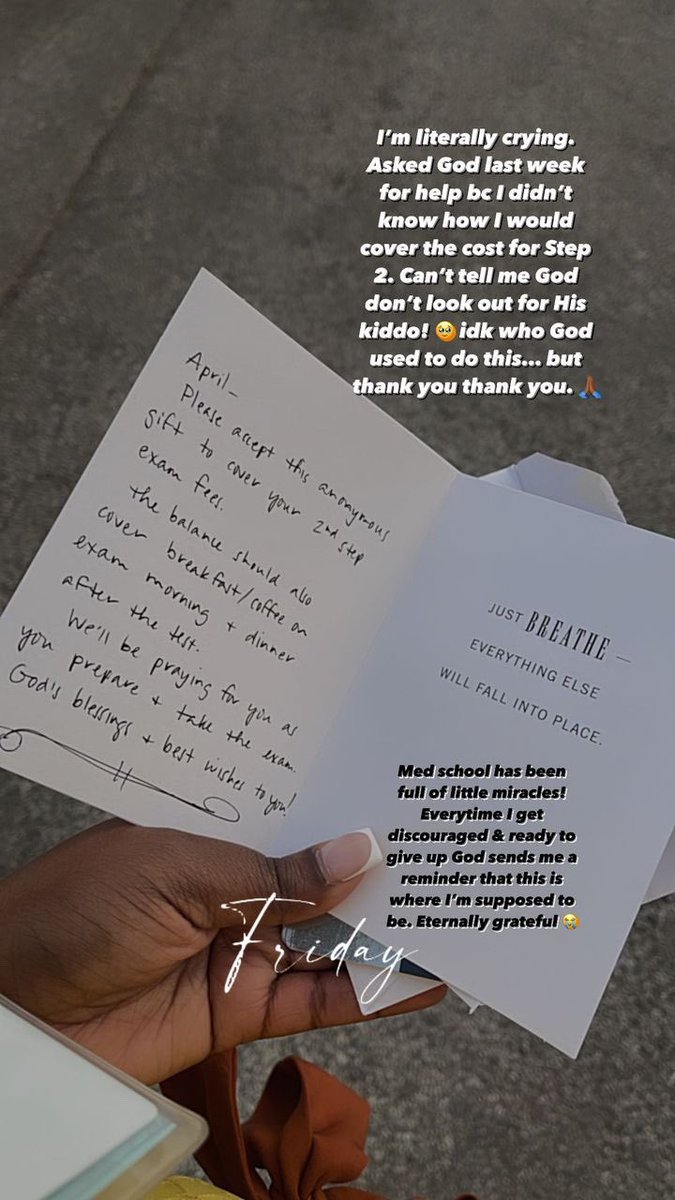 I'm literally crying.
Asked God last week
for help bc I didn't
know how I would
cover the cost for Step
2. Can't tell me God
don't look out for His
kiddo! 🥹idk who God
used to do this... but
thank you thank you. 🙏🏾
April-
Please accept this anonymous
gift to cover your 2nd step
exam fees.
the balance should also
cover breakfast/coffee on
exam morning + dinner
after the test.
We'll be praying for you as
you prepare + take the exam.
God's blessings + best wishes to you!
JUST BREATHE —
EVERYTHING ELSE
WILL FALL INTO PLACE.
Med school has been
full of little miracles!
Everytime I get
discouraged & ready to
give up God sends me a
reminder that this is
where I'm supposed to
be. Eternally grateful 😭
Friday